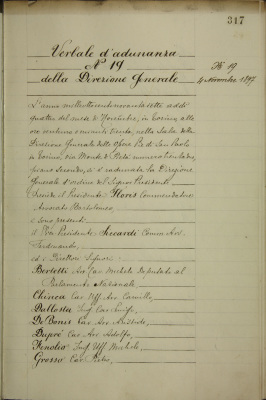 317
Verbale d'adunanza
N° 19
della Direzione Generale
N° 19
4 Novembre 1897
L'anno milleottocentonovantasette addì
quattro del mese di Novembre, in Torino, alle
ore ventuna e minuti trenta, nella Sala della
Direzione Generale delle Opere Pie di San Paolo
in Torino, via Monte di Pietà numero trentadue,
piano secondo, si è radunata la Direzione
Generale d'ordine del Signor Presidente
Presiede il Presidente Floris Commendatore
Avvocato Bartolomeo
e sono presenti
il Vice Presidente Siccardi Comm. Avv.
Ferdinando,
ed i Direttori Signori:
Bertetti Avv. Cav. Michele Deputato al
Parlamento Nazionale,
Chinea Cav. Uff. Avv. Camillo,
Dallosta Ing. Cav. Luigi,
De Bonis Cav. Avv.
Dupré Cav. Avv. Adolfo,
Fenolio Ing. Uff. Michele
Grosso Cav. Pietro,